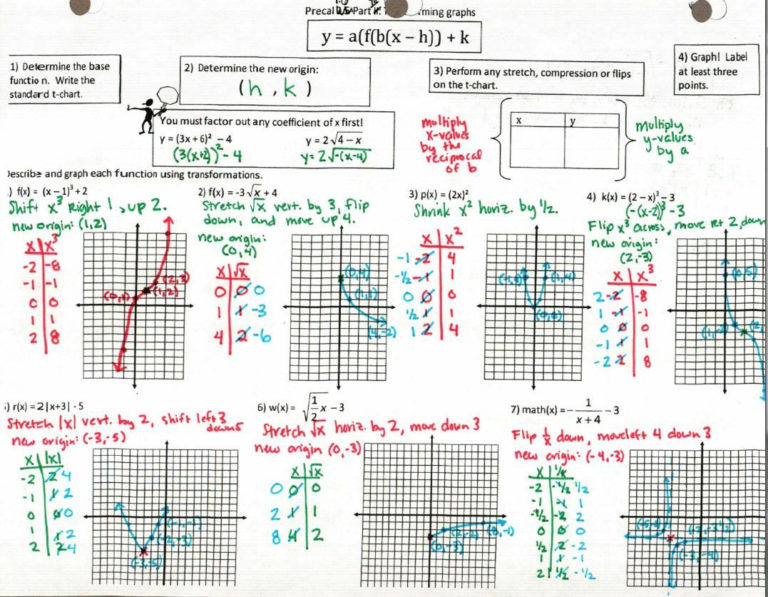 Precal
Part
rming graphs
y = a(f(b(x – h)) + k
1) Determine the base
function. Write the
standard t-chart.
2) Determine the new origin:
(h, k)
3) Perform any stretch, compression or flips
on the t-chart.
4) Graph! Label
at least three
points.
You must factor out any coefficient of x first!
y = (3x + 6)² – 4
y = 2√4 – x
(3(x+2))² – 4
y = 2√-(x-4)
multiply
x-values
by the
reciprocal
of b
x y
multiply
y-values
by a
Describe and graph each function using transformations.
.) f(x) = (x – 1)³ + 2
Shift x³ Right 1, up 2.
new origin: (1,2)
x x³
-2 -8
-1 -1
0 0
1 1
2 8
(1,2)
2) f(x) = -3√x + 4
Stretch √x vert. by 3, flip
down, and move up 4.
new origin:
(0,4)
x √x
0 0 0
1 1 -3
4 2 -6
(0,4)
(1,1)
(4,-2)
3) p(x) = (2x)²
Shrink x² horiz. by ½.
x x²
-1 -2 4
-½ -1 1
0 0 0
½ 1 1
1 2 4
(1,4)
(0,0)
4) k(x) = (2 – x)³ – 3
(-(x-2))³ -3
Flip x³ across, move rt 2, down
new origin:
(2,-3)
x x³
2 -2 -8
1 -1 -1
0 0 0
-1 1 1
-2 2 8
(0,5)
5) r(x) = 2|x+3| - 5
Stretch |x| vert. by 2, shift left 3
down 5
new origin: (-3,-5)
x |x|
-2 2 4
-1 1 2
0 0 0
1 1 2
2 2 4
(-1,-1)
(-2,-3)
(-3,-5)
6) w(x) = √½x – 3
Stretch √x horiz. by 2, move down 3
new origin (0,-3)
x √x
0 0 0
2 1 1
8 4 2
(0,-3)
(2,-2)
(8,-1)
7) math(x) = – 1/(x + 4) – 3
Flip 1/x down, move left 4 down 3
new origin: (-4,-3)
x 1/x
-2 -½ ½
-1 -1 1
-½ -2 2
0 0 0
½ 2 -2
1 1 -1
2 ½ -½
(-3,-4)